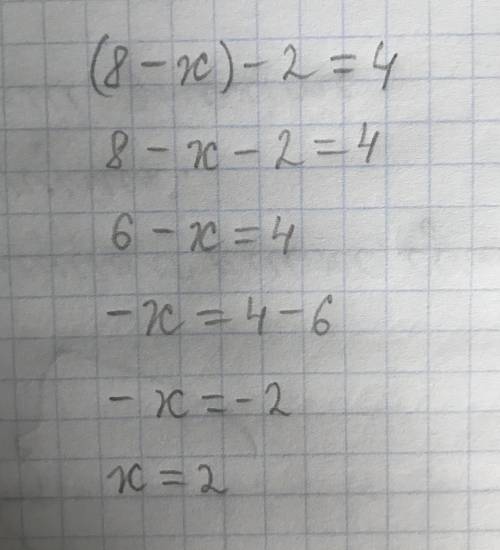 (8 - x) - 2 = 4
8 - x - 2 = 4
6 - x = 4
- x = 4 - 6
- x = - 2
x = 2